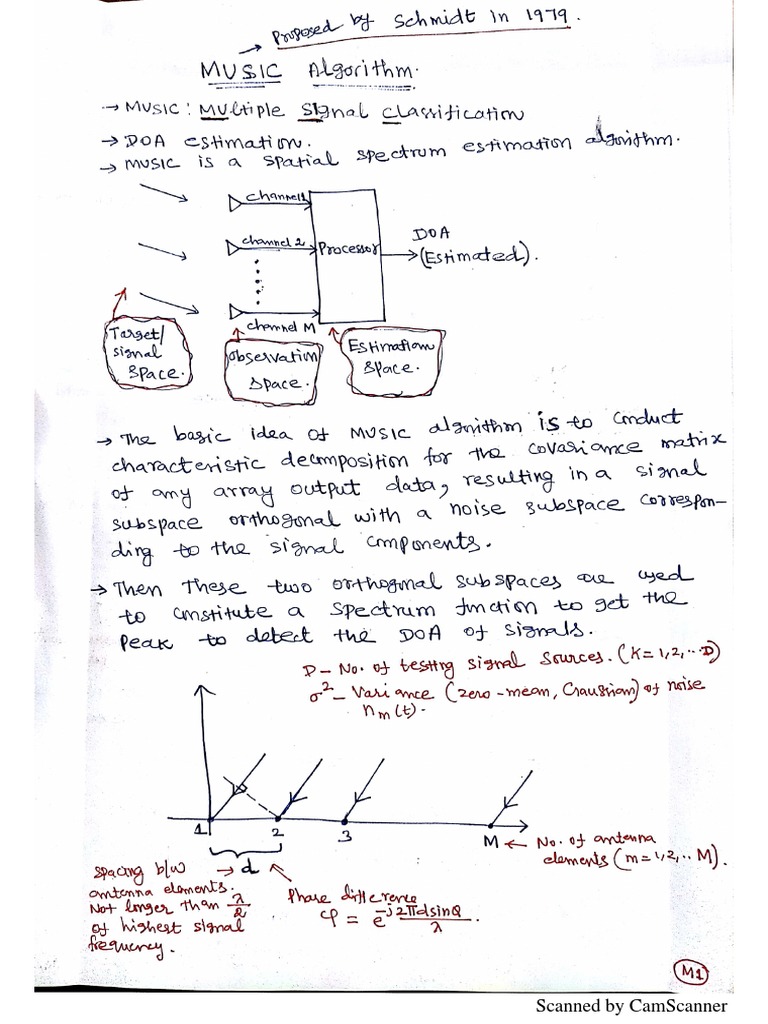 → Proposed by Schmidt in 1979.
MUSIC Algorithm.
→ MUSIC: MULtiple SIgnal Classification
→ DOA estimation.
→ MUSIC is a spatial spectrum estimation algorithm.
channel 1
channel 2
channel M
Processor
DOA
(Estimated).
Target/
signal
space.
observation
space.
Estimation
space.
→ The basic idea of MUSIC algorithm is to conduct
characteristic decomposition for the covariance matrix
of any array output data, resulting in a signal
subspace orthogonal with a noise subspace correspon-
ding to the signal components.
→ Then these two orthogonal subspaces are used
to constitute a spectrum function to get the
peak to detect the DOA of signals.
D – No. of testing signal sources. (K = 1,2,...D)
σ² – Variance (zero-mean, Gaussian) of noise
nₘ(t).
1 2 3 M ← No. of antenna
elements (m = 1,2,.. M).
spacing b/w → d
antenna elements.
Not longer than λ/2
of highest signal
frequency.
Phase difference
φ = e^(-j2πdsinθ/λ).
M1
Scanned by CamScanner